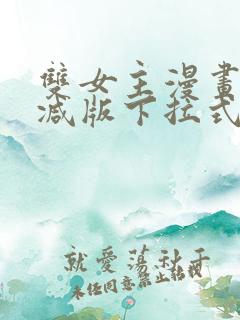 雙女主漫畫
減版下拉式
就愛蕩秋千
未經同意禁止轉載